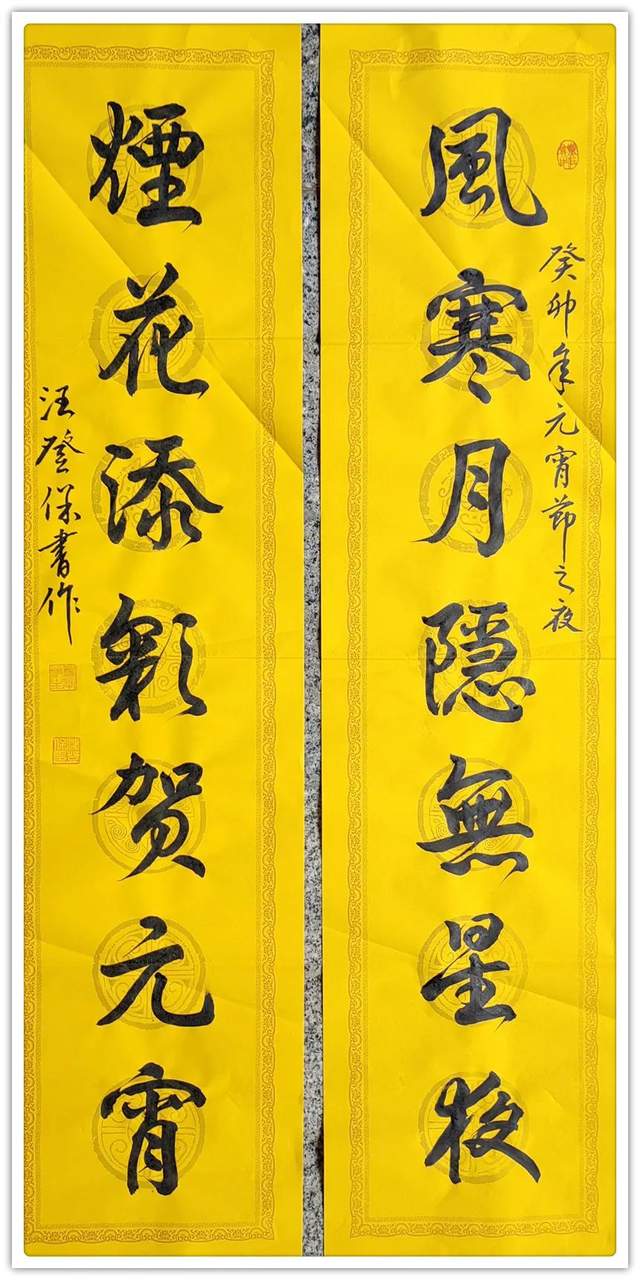 癸卯年元宵節之夜
風寒月隱無星夜
煙花添彩賀元宵
汪登保書作